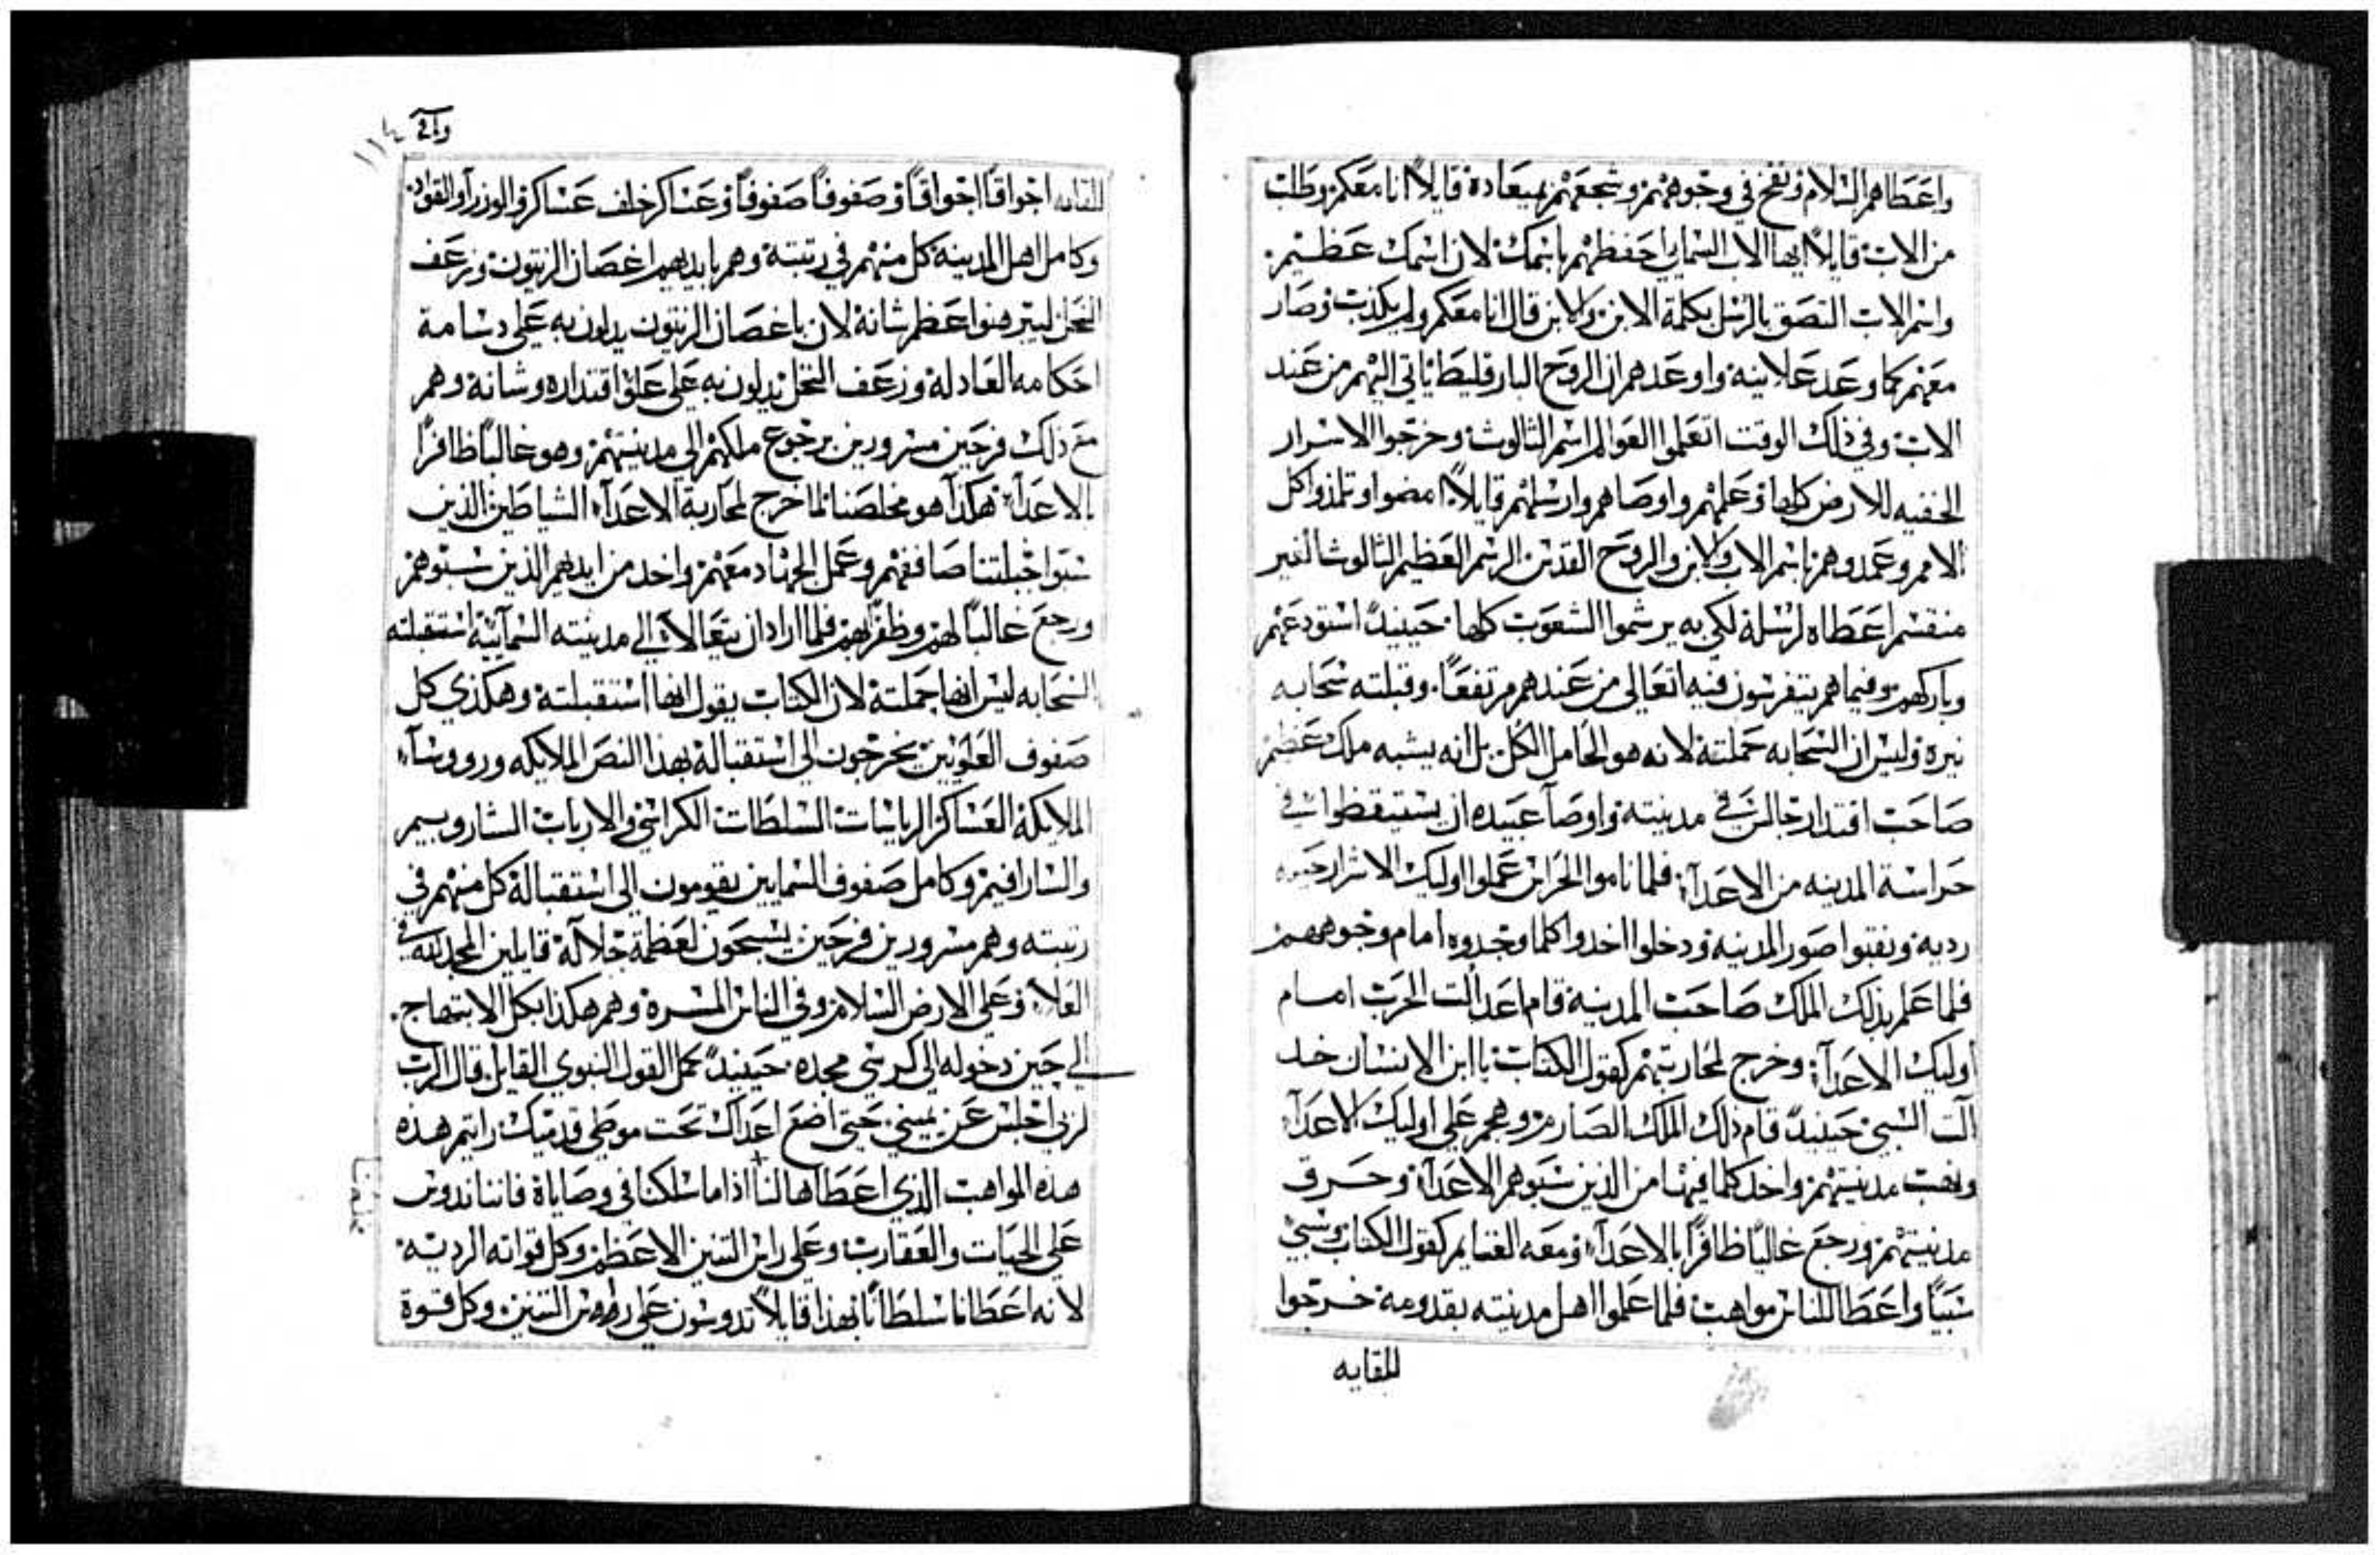 واعطاهم السلام ونفخ في وجوههم وشجعهم بميعاده قايلاً انا معكم وطلب
من الاب قايلاً ايها الاب السمايي احفظهم باسمك لان اسمك عظيم.
واسم الاب التصق بالرسل بكلمة الابن والابن قال انا معكم ولم يكذب وصار
معهم كما وعد علانية واوعدهم ان الروح البارقليط ياتي اليهم من عند
الاب وفي ذلك الوقت اتعلموا العوالم اسم الثالوث وخرجوا الاسرار
الخفيه للارض كلها وعلمهم واوصاهم وارسلهم قايلاً امضوا وتلمذوا كل
الامم وعمدوهم باسم الاب والابن والروح القدس الرسم العظيم الثالوث الغير
منقسم اعطاه لرسله لكي به يرشموا الشعوب كلها. حينيدً استودعهم
وباركهم وفيما هم يتفرسون فيه اتعالى من عندهم مرتفعاً. وقبلته سحابه
نيره وليس ان السحابه حملته لانه هو الحامل الكل بل انه يشبه ملك عظيم
صاحب اقتدار جالس في مدينته واوصا عبيده ان يستيقظوا في
حراسة المدينه من الاعدآ فلما ناموا الحراس عملوا اوليك الاشرار حيله
رديه ونقبوا صور المدينه ودخلوا اخدوا كلما وجدوه امام وجوههم
فلما علم بذلك الملك صاحب المدينة قام اعد ألت الحرب امام
اوليك الاعدآ وخرج لمحاربتهم كقول الكتاب يا ابن الانسان خد
آلت السبي حينيدً قام ذلك الملك الصارم وهجم على اوليك الاعدآ
ونهب مدينتهم واخد كلما فيها من الذين سبوهم الاعدآ وحرق
مدينتهم ورجع غالباً ظافراً بالاعدآ ومعه الغنايم كقول الكتاب وسبي
سبياً واعطا للناس مواهب فلما علموا اهل مدينته بقدومه خرجوا
للقايه
١١٤
للقايه اجواقاً اجواقاً وصفوفاً صفوفاً وعساكر خلف عساكر والوزرآ والقواد.
وكامل اهل المدينه كل منهم في رتبته وهم بايديهم اغصان الزيتون وزعف
النخل ليبرهنوا عظم شانه لان باغصان الزيتون يدلون به على دسامة
احكامه العادلة وزعف النخل يدلون به على علو اقتداره وشانه وهم
مع ذلك فرحين مسرورين برجوع ملكهم الى مدينتهم وهو غالباً ظافراً
بالاعدآ. هكذا هو مخلصنا لما خرج لمحاربة الاعدآ الشياطين الذين
سبوا جبلتنا صاففهم وعمل الجهاد معهم واخد من ايديهم الذين سبوهم
ورجع غالباً لهم وظفر بهم فلما اراد ان يتعالا الي مدينته السمآيية استقبلته
السحابه ليس انها حملته لان الكتاب يقول انها استقبلته وهكذي كل
صفوف العلويين يخرجون الى استقباله بهذا النص الملايكه وروسآ
الملايكة العساكر الرياسات السلطات الكراسي والارباب الشاروبيم
والسارافيم وكامل صفوف السمايين يقومون الى استقباله كل منهم في
رتبته وهم مسرورين فرحين يسبحون لعظمة جلاله قايلين المجد لله في
العلا وعلى الارض السلام وفي الناس المسرة وهم هكذا بكل الابتهاج.
الي حين دخوله الى كرسي مجده. حينيدً كمل القول النبوي القايل قال الرب
لربي اجلس عن يميني حتى اضع اعداك تحت موطي قدميك رايتم هذه
هذه المواهب الذي اعطاها لنا اذا ما سلكنا في وصاياه فاننا ندوس
على الحيات والعقارب وعلى راس التنين الاعظم وكل قواته الرديه.
لانه اعطانا سلطاناً بهذا قايلاً تدوسون على رووس التنين وكل قوة